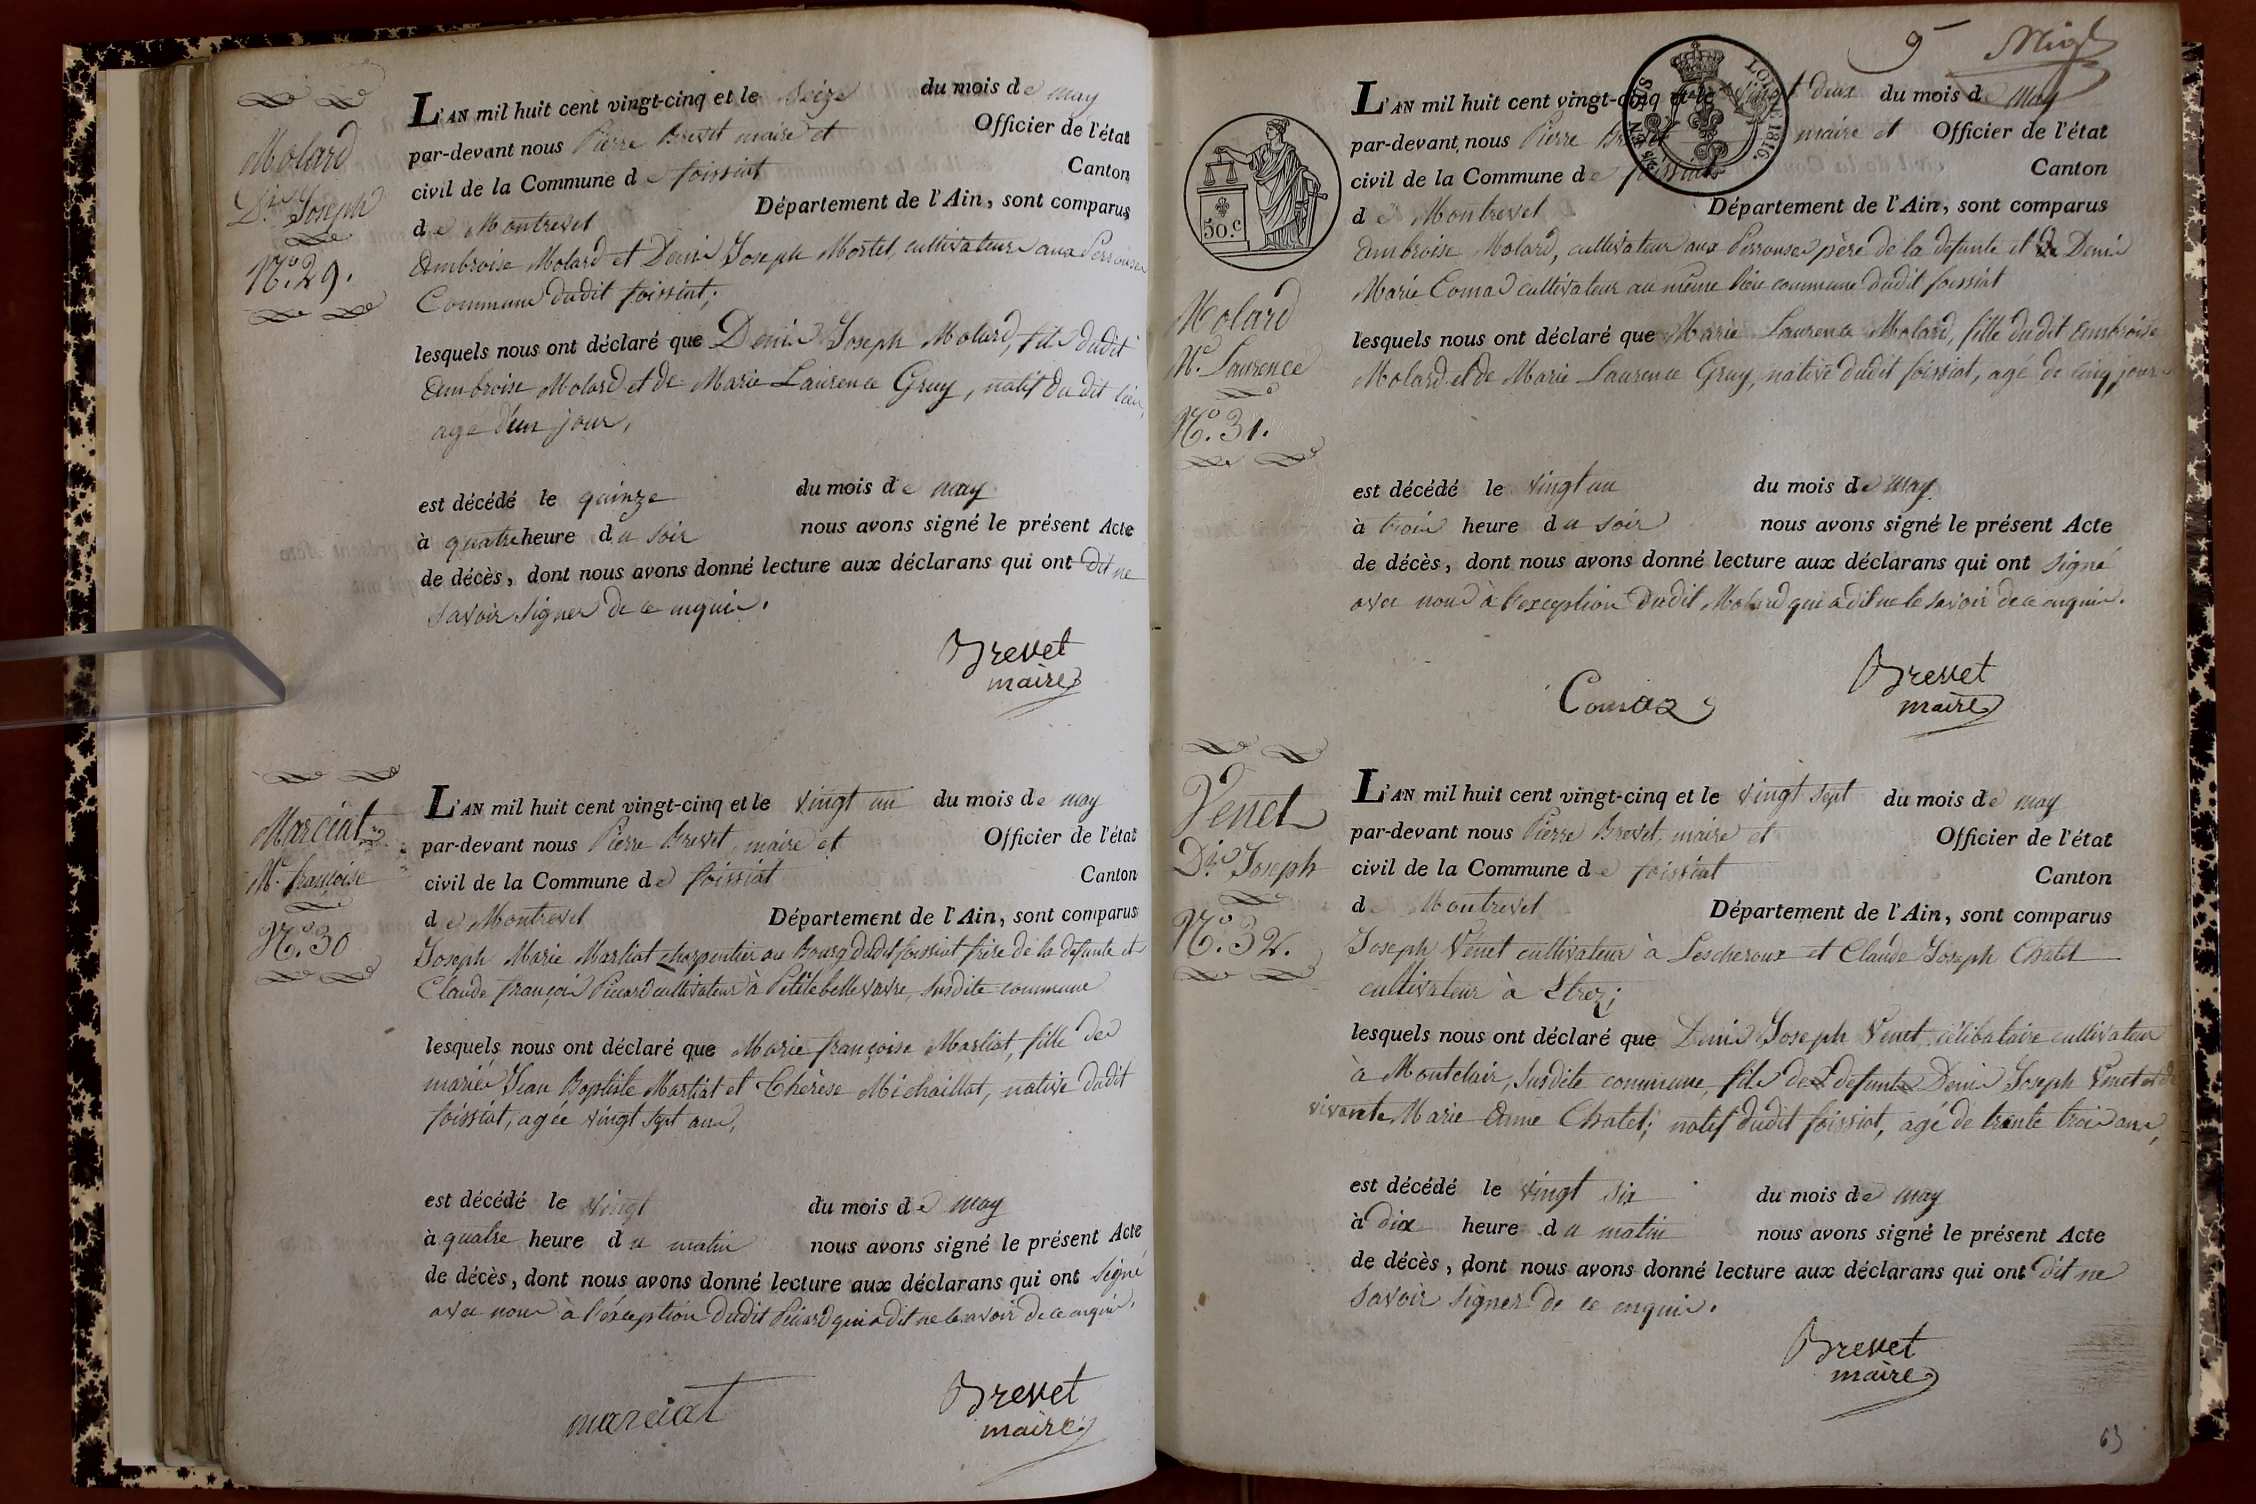 Molard
D.is Joseph
N.o 29.
L'AN mil huit cent vingt-cinq et le seize du mois de may
par-devant nous Pierre Brevet maire et Officier de l'état
civil de la Commune de foissiat Canton
de Montrevel Département de l'Ain, sont comparus
Ambroise Molard et Denis Joseph Mortel, cultivateurs aux Perrouses
Commune dudit foissiat;
lesquels nous ont déclaré que Denis Joseph Molard, fils dudit
Ambroise Molard et de Marie Laurence Gruy, natif du dit lieu,
age d'un jour,
est décédé le quinze du mois de may
à quatre heure du soir nous avons signé le présent Acte
de décès, dont nous avons donné lecture aux déclarans qui ont dit ne
savoir signer de ce enquis.
Brevet
maire
Marciat
M.e françoise
N.o 30
L'AN mil huit cent vingt-cinq et le vingt un du mois de may
par-devant nous Pierre Brevet, maire et Officier de l'état
civil de la Commune de foissiat Canton
de Montrevel Département de l'Ain, sont comparus
Joseph Marie Marliat charpentier au Bourg dudit foissiat frère de la defunte et
Claude françois Picard cultivateur à Petitebellevavre, susdite commune
lesquels nous ont déclaré que Marie françoise Marliat, fille de
mariés Jean Baptiste Marliat et Thérèse Michaillat, native dudit
foissiat, agée vingt sept ans,
est décédé le vingt du mois de may
à quatre heure du matin nous avons signé le présent Acte
de décès, dont nous avons donné lecture aux déclarans qui ont signé
avec nous à l'exception dudit Picard qui a dit ne le savoir de ce enquis.
marciat
Brevet
maire
9
LOI DE 1816.
50.c
Molard
M.e Laurence
N.o 31.
L'AN mil huit cent vingt-cinq et le vingt deux du mois de may
par-devant nous Pierre Brevet maire et Officier de l'état
civil de la Commune de foissiat Canton
de Montrevel Département de l'Ain, sont comparus
Ambroise Molard, cultivateur aux Perrouses père de la defunte et Denis
Marie Comas cultivateur au même lieu commune dudit foissiat
lesquels nous ont déclaré que Marie Laurence Molard, fille dudit Ambroise
Molard et de Marie Laurence Gruy, native dudit foissiat, agé de cinq jours
est décédé le vingt un du mois de may
à trois heure du soir nous avons signé le présent Acte
de décès, dont nous avons donné lecture aux déclarans qui ont signé
avec nous à l'exception dudit Molard qui a dit ne le savoir de ce enquis.
Comaz
Brevet
maire
Venet
D.is Joseph
N.o 32.
L'AN mil huit cent vingt-cinq et le vingt sept du mois de may
par-devant nous Pierre Brevet, maire et Officier de l'état
civil de la Commune de foissiat Canton
de Montrevel Département de l'Ain, sont comparus
Joseph Venet cultivateur à Lescheroux et Claude Joseph Chatel
cultivateur à Etrez;
lesquels nous ont déclaré que Denis Joseph Venet, célibataire cultivateur
à Montclair, susdite commune, fils de defunt Denis Joseph Venet et de
vivante Marie Anne Chatel; natif dudit foissiat, agé de trente trois ans,
est décédé le vingt six du mois de may
à dix heure du matin nous avons signé le présent Acte
de décès, dont nous avons donné lecture aux déclarans qui ont dit ne
savoir signer de ce enquis.
Brevet
maire
63